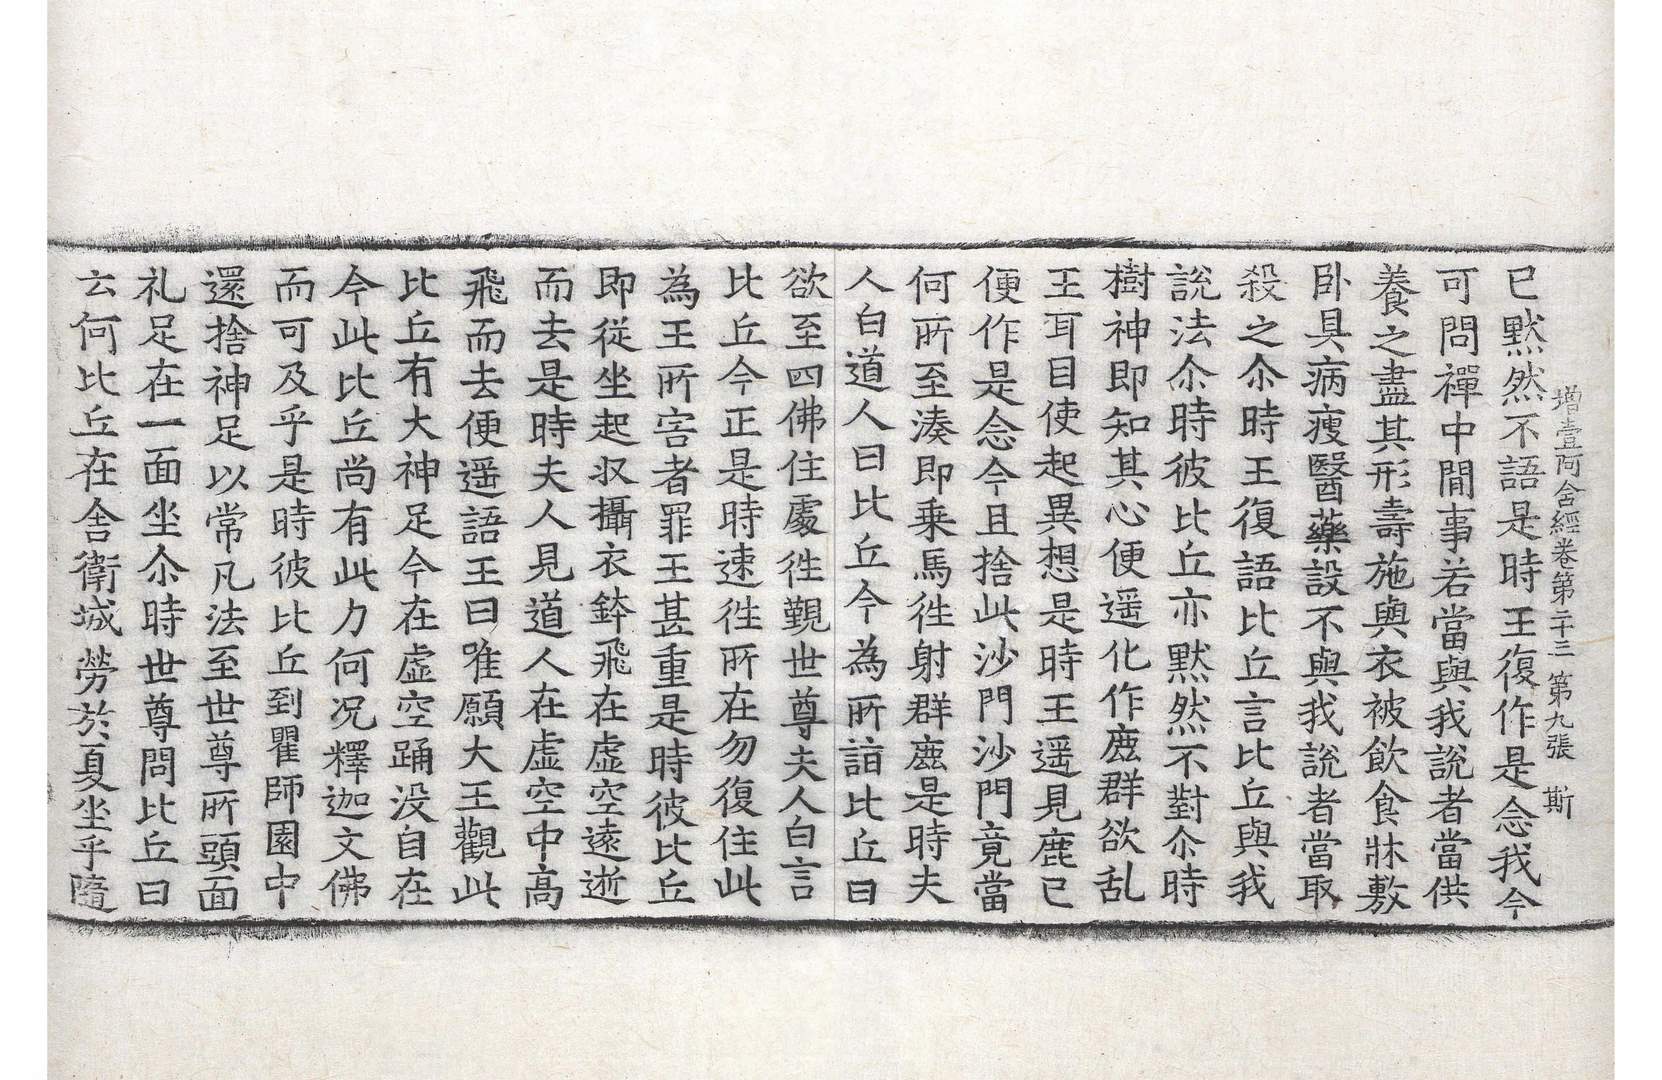 增壹阿含經卷第二十三　第九張　斯
已默然不語是時王復作是念我今
可問禪中閒事若當與我說者當供
養之盡其形壽施與衣被飲食牀敷
卧具病瘦醫藥設不與我說者當取
殺之尒時王復語比丘言比丘與我
說法尒時彼比丘亦默然不對尒時
樹神即知其心便遥化作鹿群欲乱
王耳目使起異想是時王遥見鹿已
便作是念今且捨此沙門沙門竟當
何所至湊即乗馬徃射群鹿是時夫
人白道人曰比丘今為所詣比丘曰
欲至四佛住處徃覲世尊夫人白言
比丘今正是時速徃所在勿復住此
為王所害者罪王甚重是時彼比丘
即從坐起収攝衣鉢飛在虚空遠逝
而去是時夫人見道人在虚空中高
飛而去便遥語王曰唯願大王觀此
比丘有大神足今在虚空踊没自在
今此比丘尚有此力何况釋迦文佛
而可及乎是時彼比丘到瞿師園中
還捨神足以常凡法至世尊所頭面
礼足在一面坐尒時世尊問比丘曰
云何比丘在舍衛城勞於夏坐乎隨